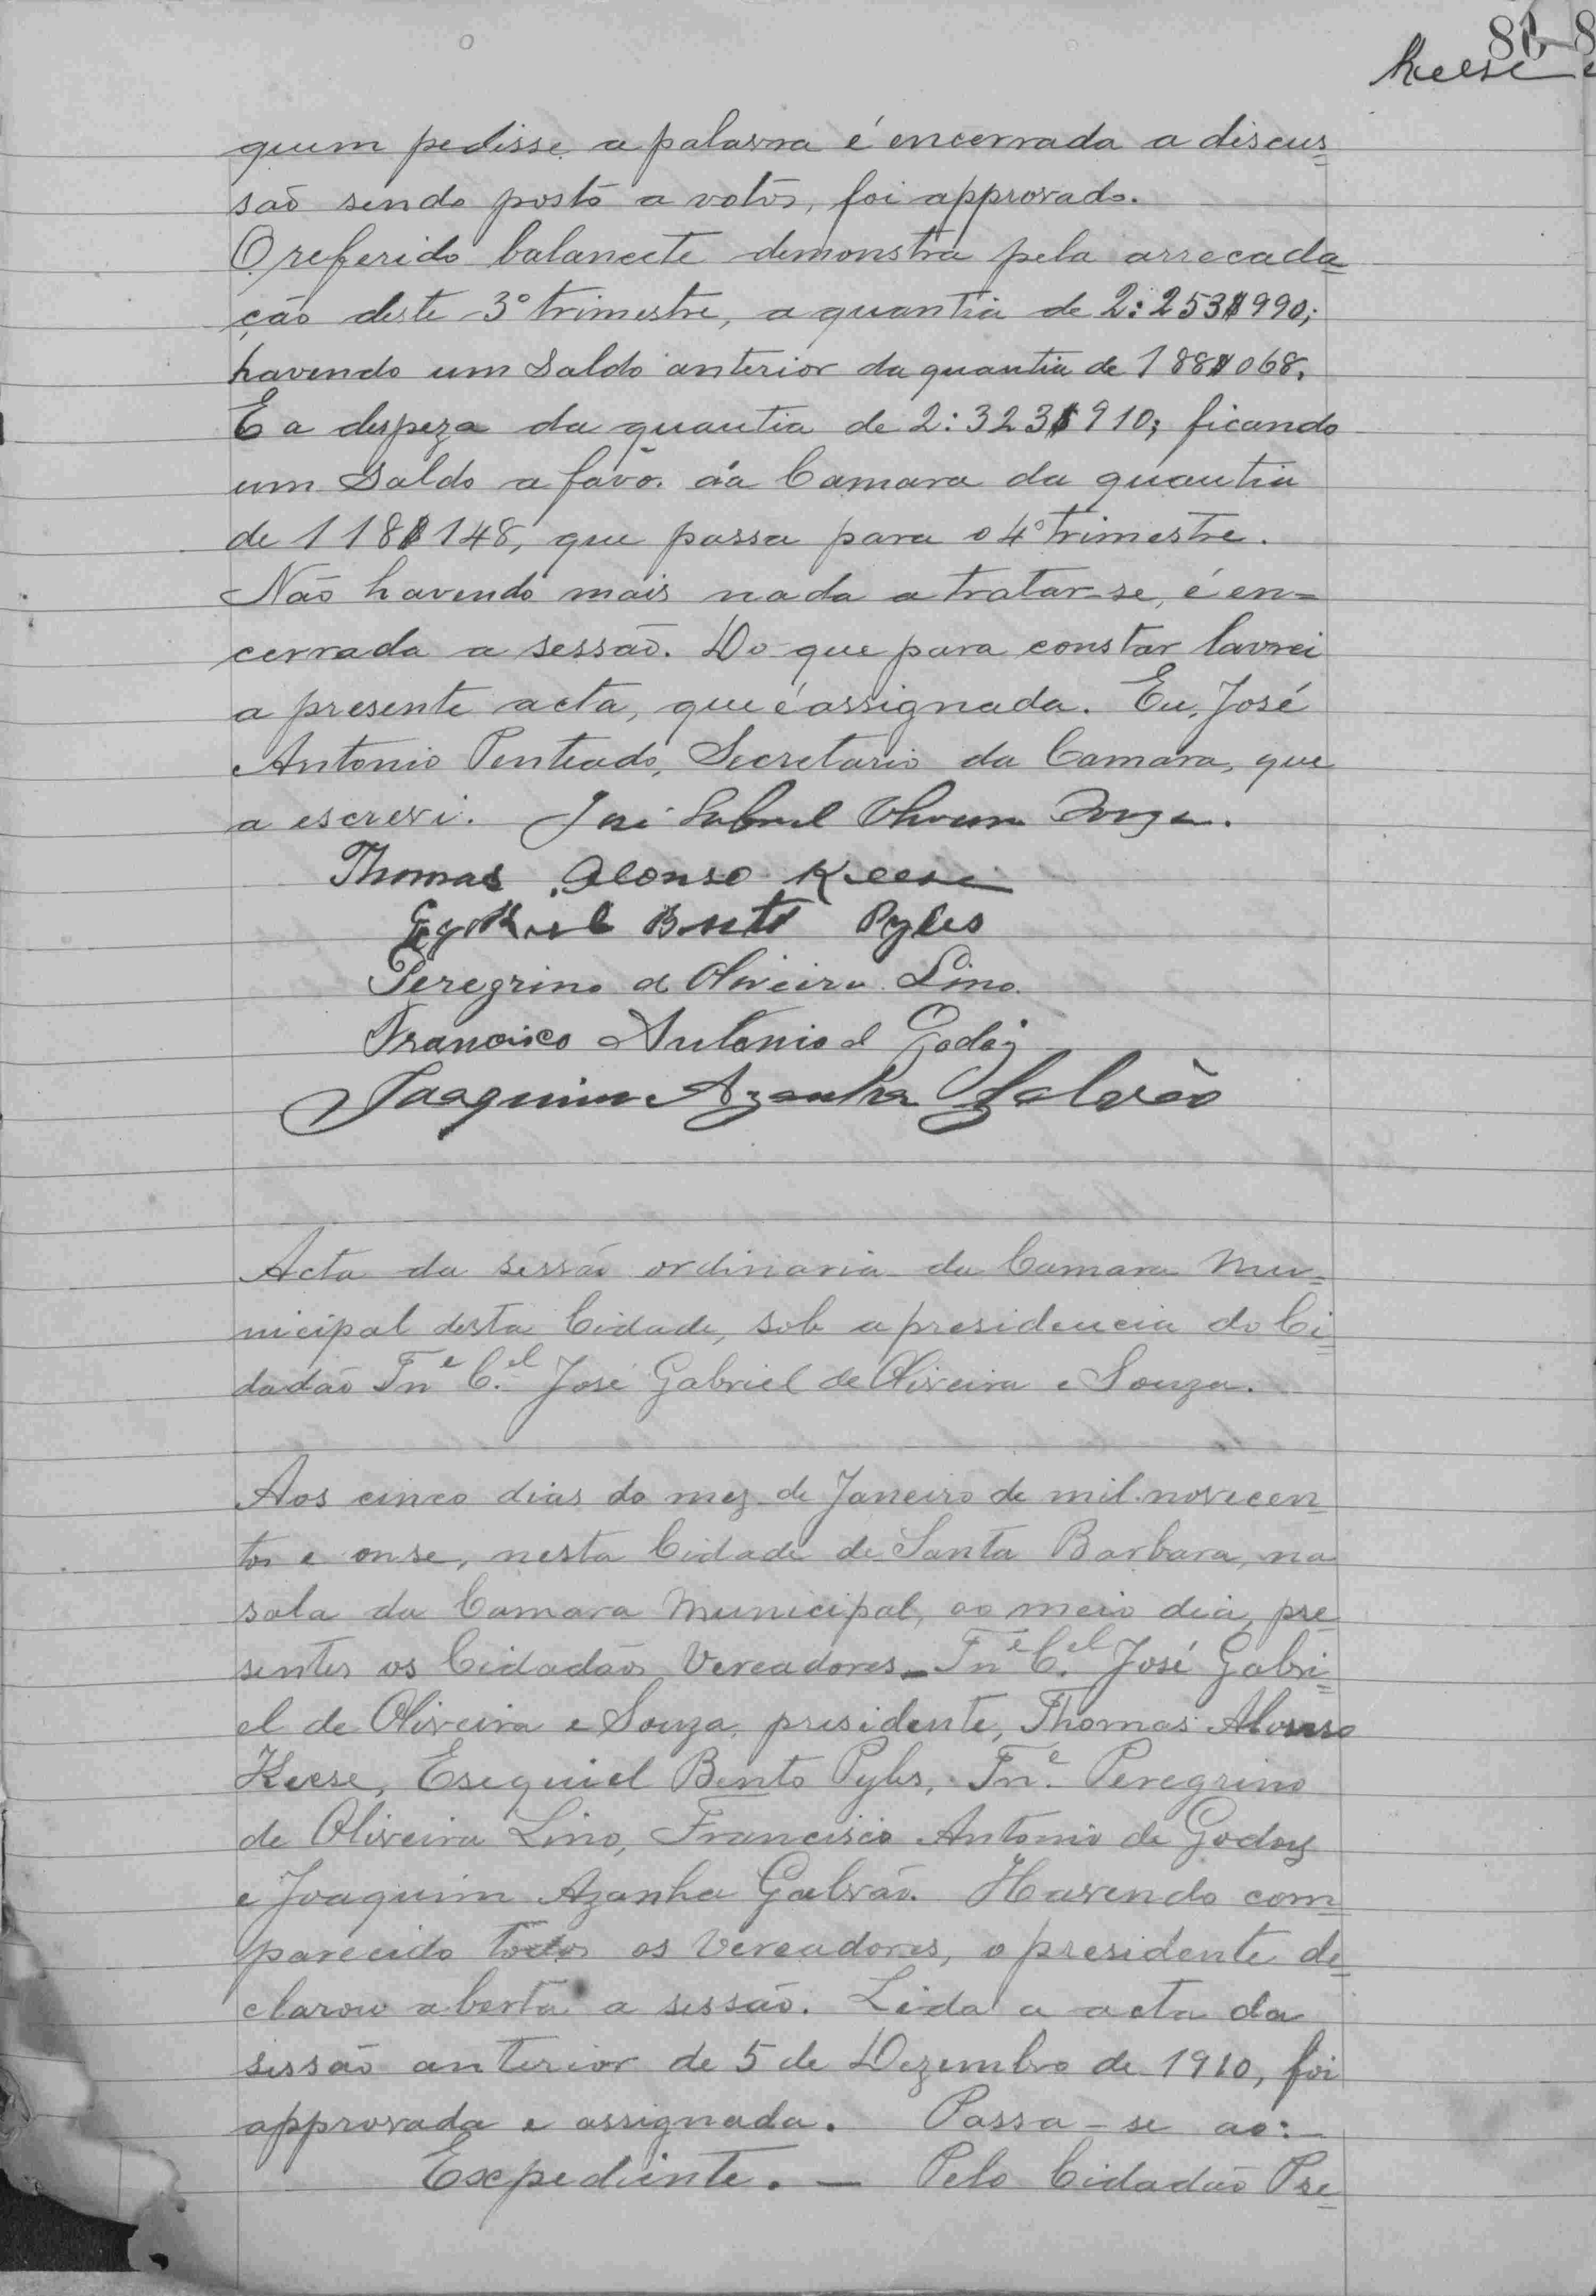 81
Keese
quem pedisse a palavra é encerrada a discus=
são sendo posto a votos, foi approvado.
O referido balancete demonstra pela arrecada=
ção deste 3º trimestre, a quantia de 2:253$990;
havendo um saldo anterior da quantia de 188$068.
E a despeza da quantia de 2:323$910; ficando
um saldo a favôr da Camara da quantia
de 118$148, que passa para o 4º trimestre.
Não havendo mais nada a tratar-se, é en=
cerrada a sessão. Do que para constar lavrei
a presente acta, que é assignada. Eu, José
Antonio Penteado, Secretario da Camara, que
a escrevi. José Gabriel Oliveira Souza.
Thomas Alonso Keese
Ezekiel Bento Pyles
Peregrino d Oliveira Lino.
Francisco Antonio d Godoj
Joaquim Azanha Galvão
Acta da sessão ordinaria da Camara Mu=
nicipal desta Cidade, sob a presidencia do Ci=
dadão Tnᵉ C.ᵉˡ José Gabriel de Oliveira e Souza.
Aos cinco dias do mez de Janeiro de mil novecen=
tos e onse, nesta Cidade de Santa Barbara, na
sala da Camara Municipal, ao meio dia, pre=
sentes os Cidadãos Vereadores - Tnᵉ C.ᵉˡ José Gabri=
el de Oliveira e Souza, presidente, Thomas Alonso
Keese, Esequiel Bento Pyles, Tn.ᵉ Peregrino
de Oliveira Lino, Francisco Antonio de Godoy
e Joaquim Azanha Galvão. Havendo com=
parecido todos os Vereadores, o presidente de=
clarou aberta a sessão. Lida a acta da
sessão anterior de 5 de Dezembro de 1910, foi
approvada e assignada. Passa-se ao:
Expediente. — Pelo Cidadão Pre=